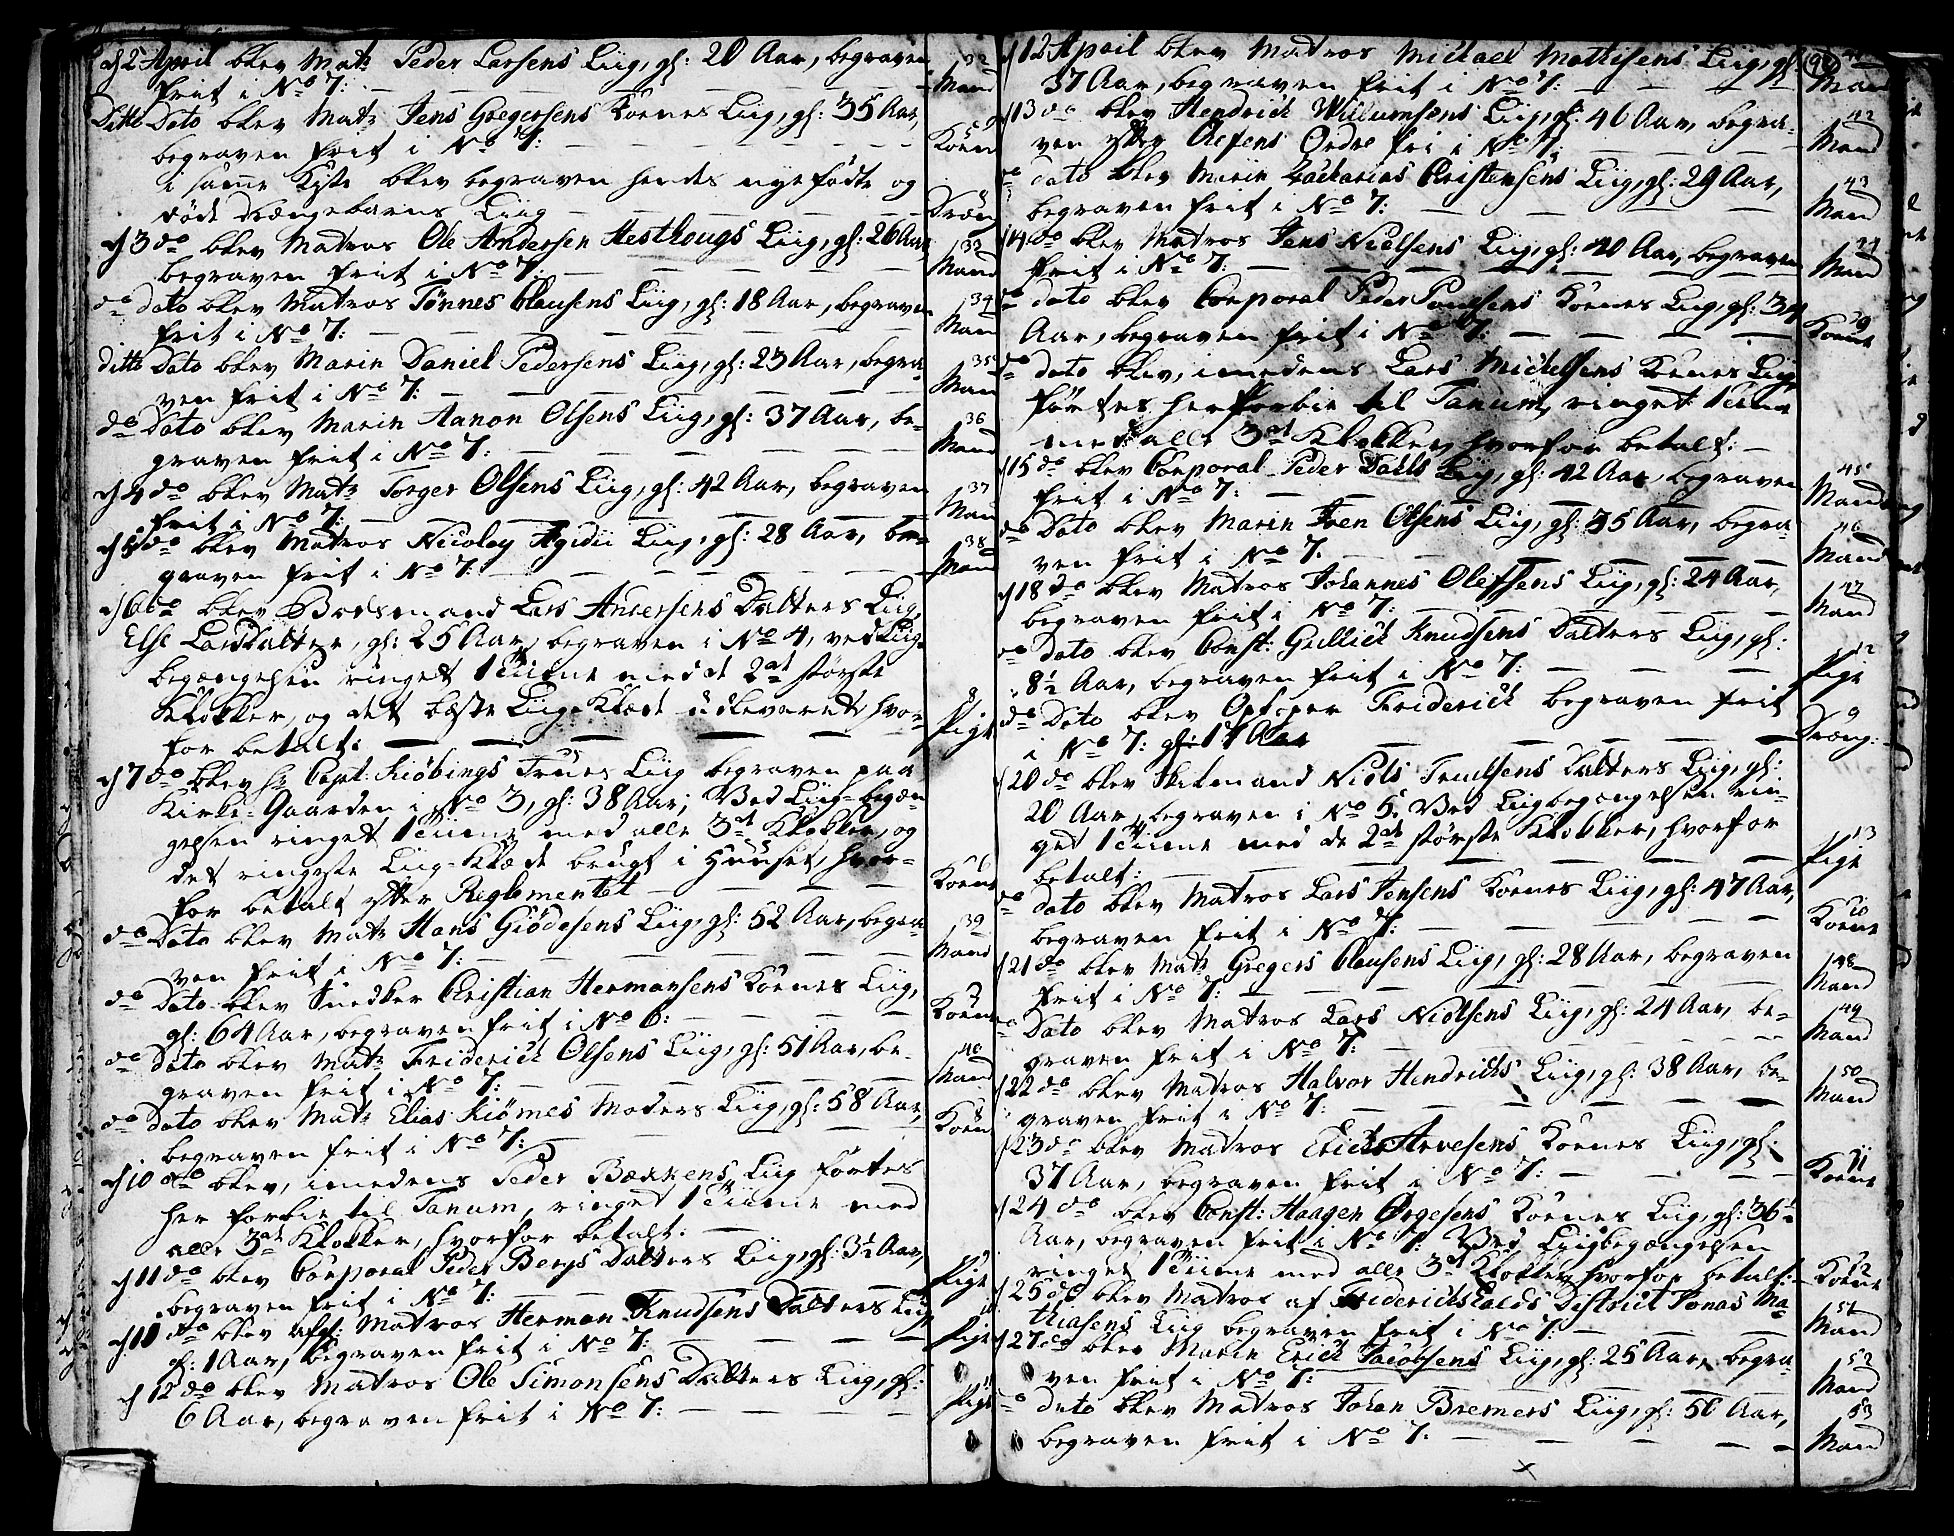 d 2 April blev Matr Peder Larsens Liig, gl: 20 Aar, begraven
frit i No 7: — 32 Mand
Ditto Dato blev Matr Jens Gregersens Koenes Liig, gl: 35 Aar,
begraven frit i No 7: — 5 Koene
i samme Kiste blev begraven hendes nye fødte og
døde Drængebarns Liig — Dræng
d 3 do blev Matros Ole Andersen Hesthougs Liig, gl: 26 Aar
begraven frit i No 7. — 33 Mand
do Dato blev Matros Tønnes Clausens Liig, gl: 18 Aar, begraven
frit i No 7: — 34 Mand
ditto Dato blev Marin Daniel Pedersens Liig, gl: 23 Aar, begra-
ven frit i No 7. — 35 Mand
do Dato blev Marin Aanon Olsens Liig, gl: 37 Aar, be-
graven frit i No 7. — 36 Mand
d 4 do blev Matr Torger Olsens Liig, gl: 42 Aar, begraven
frit i No 7: — 37 Mand
d 5 do blev Matros Nicolay Agidii Liig, gl: 28 Aar, be-
graven frit i No 7: — 38 Mand
d 6 do blev Bodsmand Lars Andersens Datters Liig
Else Larsdatter, gl: 25 Aar, begraven i No 4, ved Liig-
begængelsen ringet 1 Tiime med de 2de største
Klokker, og det bæste Liig-Klæde udleveret, hvor-
for betalt: — 8 Pige
d 7 do blev hr Capt: Kiøbings Frues Liig begraven paa
Kirke-Gaarden i No 3, gl: 38 Aar; Ved Liig-begæn-
gelsen ringet 1 Tiime med alle 3de Klokker, og
det ringeste Liig-Klæde brugt i Huuset, hvor-
for betalt efter Reglementet — 6 Koene
do Dato blev Matr Hans Giødesens Liig, gl: 52 Aar, begra-
ven frit i No 7: — 39 Mand
do Dato blev Snedker Christian Hermansens Koenes Liig,
gl: 64 Aar, begraven frit i No 6: — 7 Koene
do Dato blev Matr Friderich Olsens Liig, gl: 51 Aar, be-
graven frit i No 7: — 40 Mand
do Dato blev Matr Elias Kiømes Moders Liig, gl: 58 Aar,
begraven frit i No 7: — 8 Koene
d 10 do blev, imedens Peder Bækkens Liig førtes
her forbie til Tanum, ringet 1 Tiime med
alle 3de Klokker, hvorfor betalt: —
d 11 do blev Corporal Peder Bergs Datters Liig, gl: 3½ Aar,
begraven frit i No 7: — 9 Pige
d 11 do blev afgl: Matros Herman Knudsens Datters Liig
gl: 1 Aar, begraven frit i No 7: — Pige
d 12 do blev Matros Ole Simonsens Datters Liig, gl:
6 Aar, begraven frit i No 7: — 11 Pige
d 12 April blev Matros Michael Mattisens Liig, gl:
37 Aar, begraven frit i No 7: — 41 Mand
d 13 do blev Hendrich Willumsens Liig, gl: 46 Aar, begra-
ven efter Chefens Ordre fri i No 7: — 42 Mand
do dato blev Marin Zacharias Christensens Liig, gl: 29 Aar,
begraven frit i No 7: — 43 Mand
d 14 do blev Matros Jens Nielsens Liig, gl: 40 Aar, begraven
frit i No 7: — 44 Mand
do dato blev Corporal Peder Poulsens Koenes Liig, gl: 34
Aar, begraven frit i No 7: — 9 Koene
do dato blev, imedens Lars Michelsens Koenes Liig
førtes her forbie til Tanum, ringet 1 Tiime
med alle 3de Klokker, hvorfor betalt: —
d 15 do blev Corporal Peder Dahls Liig, gl: 42 Aar, begraven
frit i No 7: — 45 Mand
do Dato blev Marin Iven Olsens Liig, gl: 35 Aar, begra-
ven frit i No 7. — 46 Mand
d 18 do blev Matros Johannes Olefsens Liig, gl: 24 Aar,
begraven frit i No 7: — 47 Mand
do Dato blev Const: Gullich Knudsens Datters Liig, gl:
8½ Aar, begraven frit i No 7: — 12 Pige
do Dato blev Opfoper Friderich begraven frit
i No 7: gl: 17 Aar — 9 Dræng:
d 20 do blev Skikmand Niels Truelsens Datters Liig, gl:
20 Aar, begraven i No 5. Ved Liigbegængelsen rin-
get 1 Tiime med de 2de største Klokker, hvorfor
betalt: — 13 Pige
do dato blev Matros Lars Jensens Koenes Liig, gl: 47 Aar,
begraven frit i No 7: — 10 Koene
d 21 do blev Matr Gregers Clausens Liig, gl: 28 Aar, begraven
frit i No 7: — 48 Mand
do Dato blev Matros Lars Nielsens Liig, gl: 24 Aar, be-
graven frit i No 7: — 49 Mand
d 22 do blev Matros Halvor Hendrichs Liig, gl: 38 Aar, be-
graven frit i No 7: — 50 Mand
d 23 do blev Matros Erich Arvesens Koenes Liig, gl:
37 Aar, begraven frit i No 7: — 11 Koene
d 24 do blev Const: Haagen Ørgesens Koenes Liig, gl: 36½
Aar, begraven frit i No 7: Ved Liigbegængelsen
ringet 1 Tiime med alle 3de Klokker, hvorfor betalt: — 12 Koene
d 25 do blev Matros af Friderichshalds District Jonas Ma-
thiasens Liig begraven frit i No 7: — 51 Mand
d 27 do blev Marin Erich Jacobsens Liig, gl: 25 Aar, begra-
ven frit i No 7: — 52 Mand
do dato blev Matros Johan Bremers Liig, gl: 50 Aar,
begraven frit i No 7: — 53 Mand